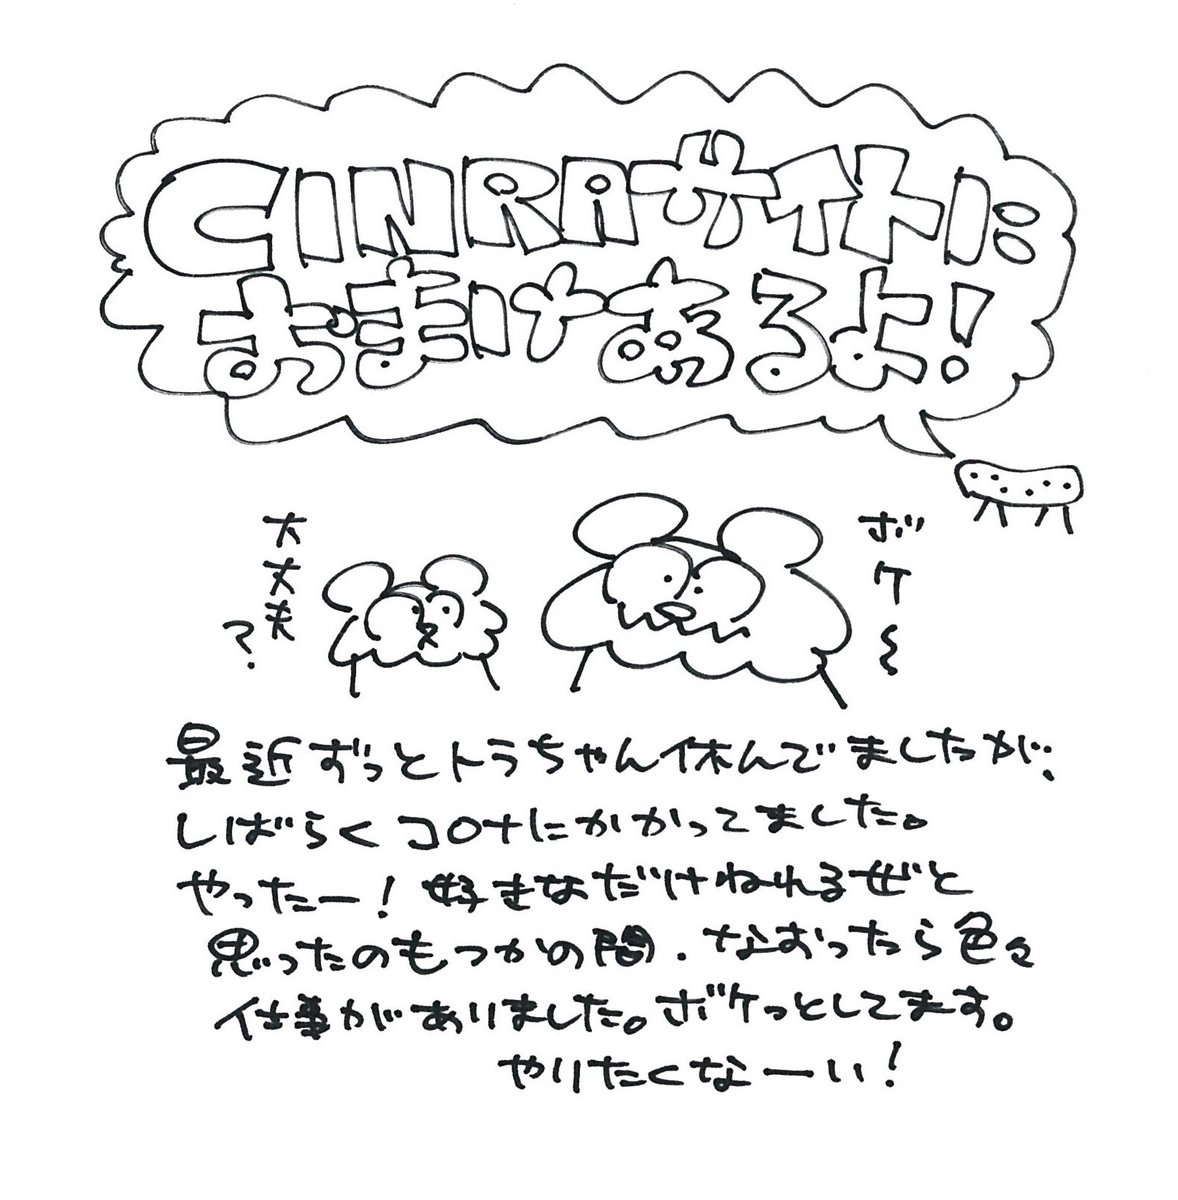 CINRAサイトに
おまけあるよ!
大丈夫?
ボケ〜
最近ずっとトラちゃん休んでましたが、
しばらくコロナにかかってました。
やったー!好きなだけねれるぜと
思ったのもつかの間、なおったら色々
仕事がありました。ボケっとしてます。
やりたくなーい!